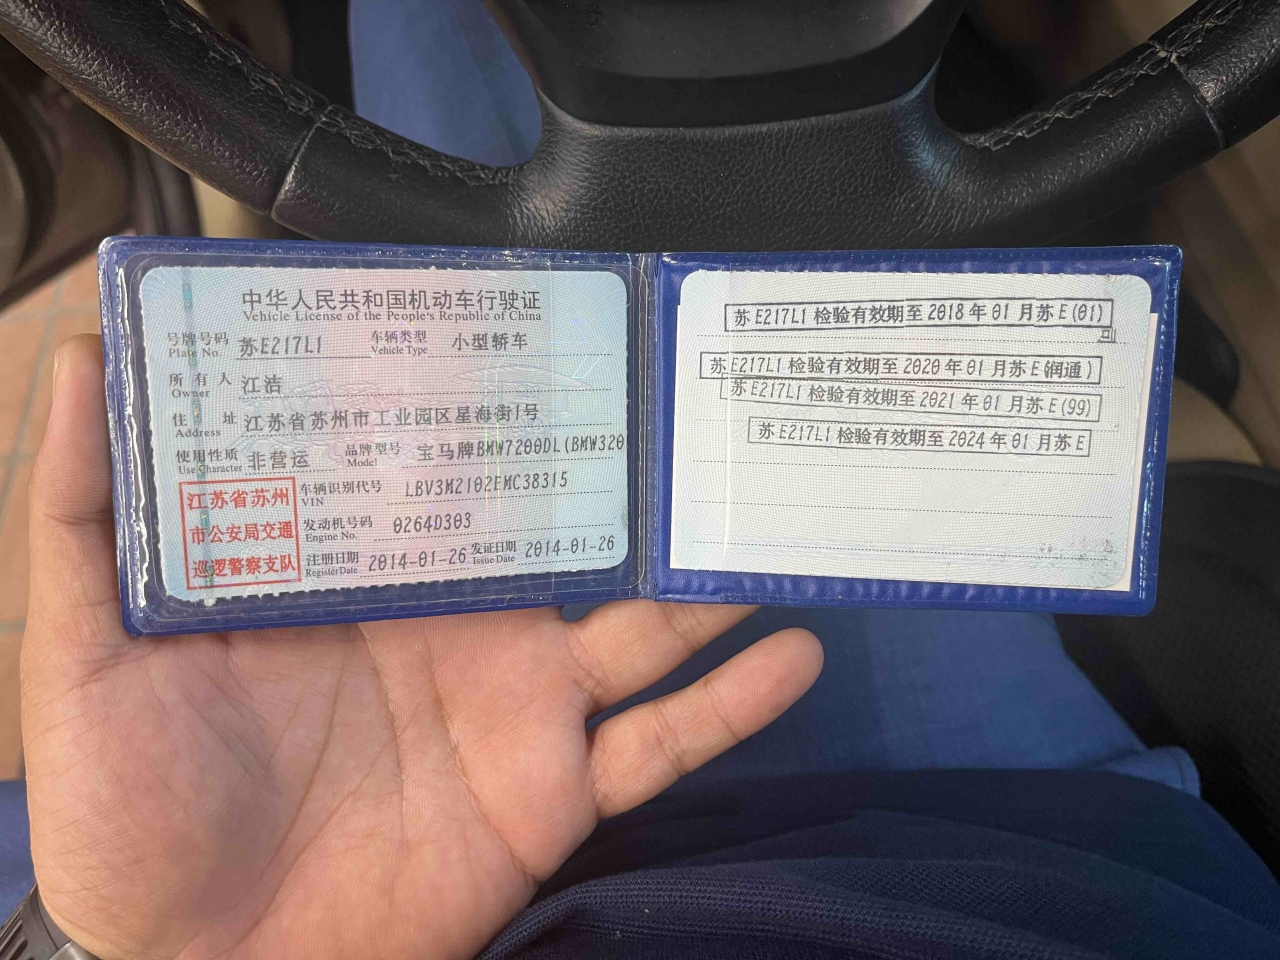 中华人民共和国机动车行驶证
Vehicle License of the People's Republic of China
号牌号码 苏E217L1 车辆类型 小型轿车
Plate No. Vehicle Type
所有人 江浩
Owner
住址 江苏省苏州市工业园区星海街1号
Address
使用性质 非营运 品牌型号 宝马牌BMW7200DL(BMW320
Use Character Model
江苏省苏州
市公安局交通
巡逻警察支队
车辆识别代号 LBV3M2102EMC38315
VIN
发动机号码 0264D303
Engine No.
注册日期 2014-01-26 发证日期 2014-01-26
Register Date Issue Date
苏E217L1检验有效期至2018年01月苏E(01)
苏E217L1检验有效期至2020年01月苏E(润通)
苏E217L1检验有效期至2021年01月苏E(99)
苏E217L1检验有效期至2024年01月苏E